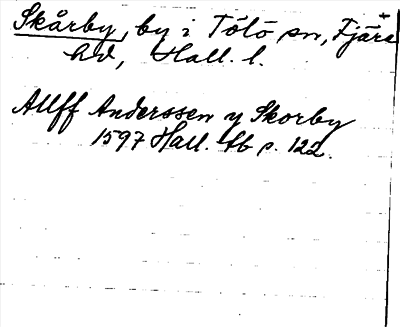 Skårby, by i Tölö sn, Fjäre
hd, Hall. l.
Allff Anderssen y Skorby
1597 Hall. Sb p. 122.